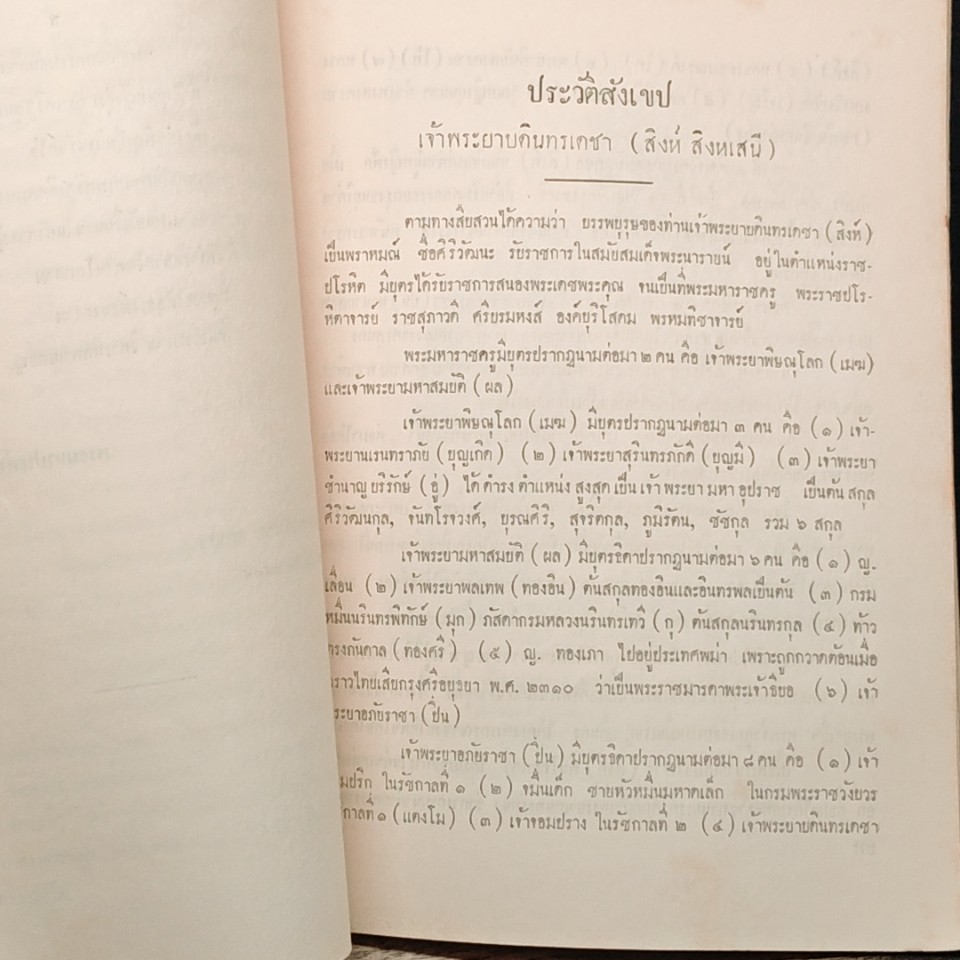 ประวัติสังเขป
เจ้าพระยาบดินทรเดชา (สิงห์ สิงหเสนี)
ตามทางสืบสวนได้ความว่า บรรพบุรุษของท่านเจ้าพระยาบดินทรเดชา (สิงห์)
เป็นพราหมณ์ ชื่อศิริวัฒนะ รับราชการในสมัยสมเด็จพระนารายน์ อยู่ในตำแหน่งราช-
ปโรหิต มีบุตรได้รับราชการสนองพระเดชพระคุณ จนเป็นที่พระมหาราชครู พระราชปโร-
หิตาจารย์ ราชสุภาวดี ศรีบรมหงส์ องค์บุริโสดม พรหมทิชาจารย์
พระมหาราชครูมีบุตรปรากฏนามต่อมา ๒ คน คือ เจ้าพระยาพิษณุโลก (เมฆ)
และเจ้าพระยามหาสมบัติ (ผล)
เจ้าพระยาพิษณุโลก (เมฆ) มีบุตรปรากฏนามต่อมา ๓ คน คือ (๑) เจ้า-
พระยานเรนทราภัย (บุญเกิด) (๒) เจ้าพระยาสุรินทรภักดี (บุญมี) (๓) เจ้าพระยา
ชำนาญบริรักษ์ (อู่) ได้ดำรงตำแหน่งสูงสุดเป็นเจ้าพระยามหาอุปราช เป็นต้นสกุล
ศิริวัฒนกุล, จันทโรจวงศ์, บุรณศิริ, สุจริตกุล, ภูมิรัตน, ชัชกุล รวม ๖ สกุล
เจ้าพระยามหาสมบัติ (ผล) มีบุตรธิดาปรากฏนามต่อมา ๖ คน คือ (๑) ญ.
เลื่อน (๒) เจ้าพระยาพลเทพ (ทองอิน) ต้นสกุลทองอินและอินทรพลเป็นต้น (๓) กรม
หมื่นนรินทรพิทักษ์ (มุก) ภัสดากรมหลวงนรินทรเทวี (กุ) ต้นสกุลนรินทรกุล (๔) ท้าว
ทรงกันดาล (ทองศรี) (๕) ญ. ทองเภา ไปอยู่ประเทศพม่า เพราะถูกกวาดต้อนเมื่อ
คราวไทยเสียกรุงศรีอยุธยา พ.ศ. ๒๓๑๐ ว่าเป็นพระราชมารดาพระเจ้าธิบอ (๖) เจ้า
พระยาอภัยราชา (ปิ่น)
เจ้าพระยาอภัยราชา (ปิ่น) มีบุตรธิดาปรากฏนามต่อมา ๘ คน คือ (๑) เจ้า
มปริก ในรัชกาลที่ ๑ (๒) จมื่นเด็ก ชายหัวหมื่นมหาดเล็ก ในกรมพระราชวังบวร
กาลที่ ๑ (แตงโม) (๓) เจ้าจอมปราง ในรัชกาลที่ ๒ (๔) เจ้าพระยาบดินทรเดชา